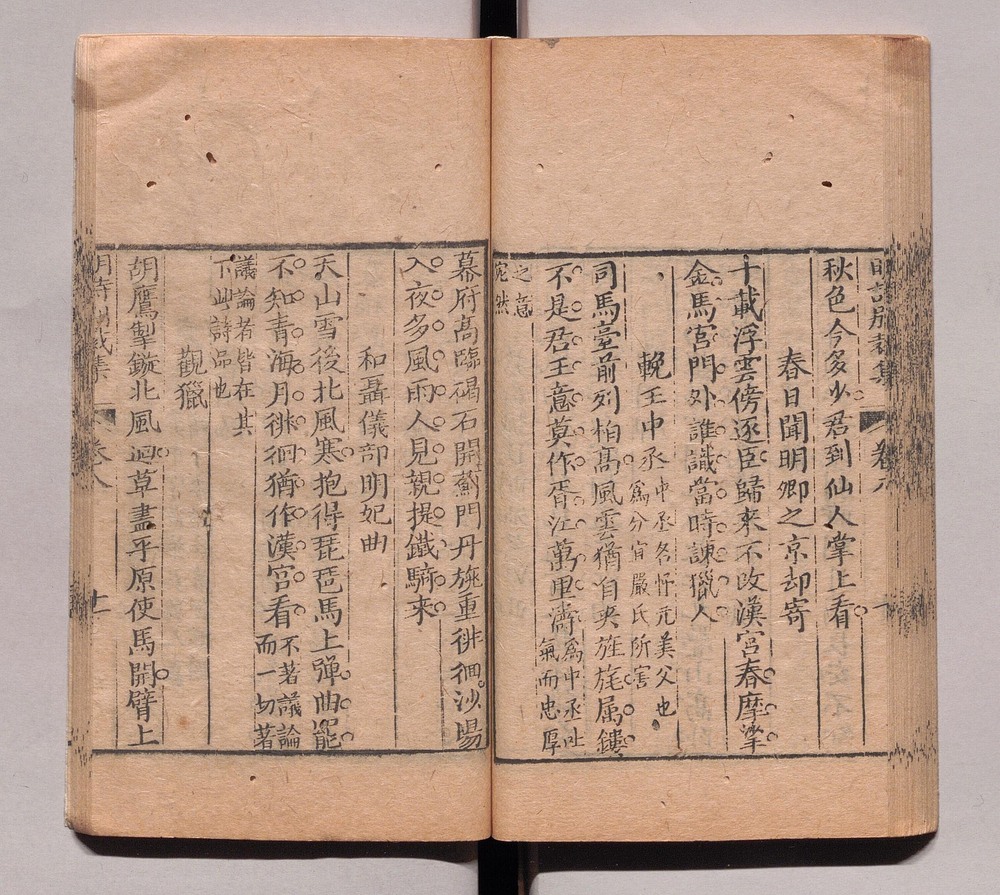 明詩別裁集 卷八 十
秋色今多少君到仙人掌上看
春日聞明卿之京却寄
十載浮雲傍逐臣歸來不改漢宮春摩挲
金馬宮門外誰識當時諫獵人
輓王中丞 中丞名忬元美父也
爲分宜嚴氏所害
司馬臺前列柏高風雲猶自夾旌旄属鏤
不是君王意莫作胥江萬里濤 爲中丞吐
氣而忠厚
之意
宛然
幕府高臨碣石開薊門丹旐重徘徊沙塲
入夜多風雨人見親提鐵騎來
和聶儀部明妃曲
天山雪後北風寒抱得琵琶馬上彈曲罷
不知青海月徘徊猶作漢宮看 不著議論
而一切著
議論者皆在其
下此詩品也
觀獵
胡鷹掣鏇北風迴草盡平原使馬開臂上
明詩別裁集 卷八 十一